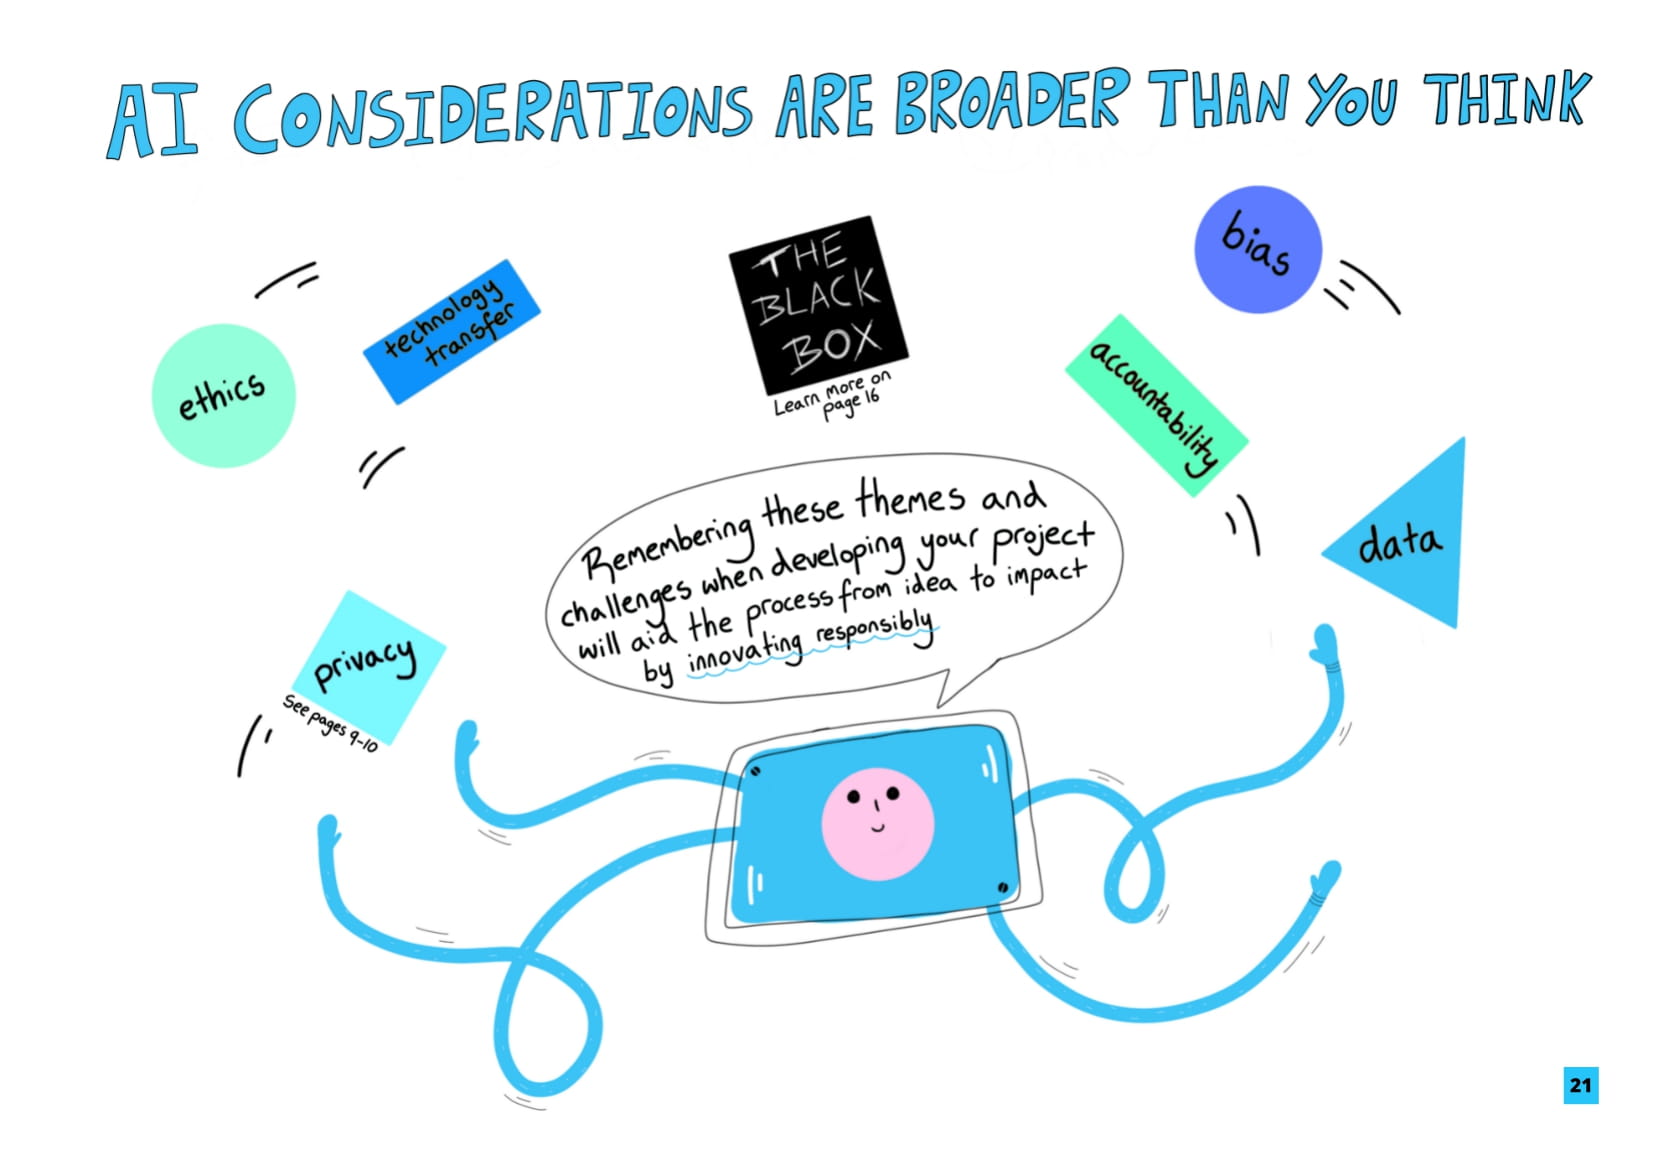 AI CONSIDERATIONS ARE BROADER THAN YOU THINK
ethics
technology
transfer
THE
BLACK
BOX
Learn more on
page 16
bias
accountability
data
privacy
See pages 9-10
Remembering these themes and
challenges when developing your project
will aid the process from idea to impact
by innovating responsibly
21